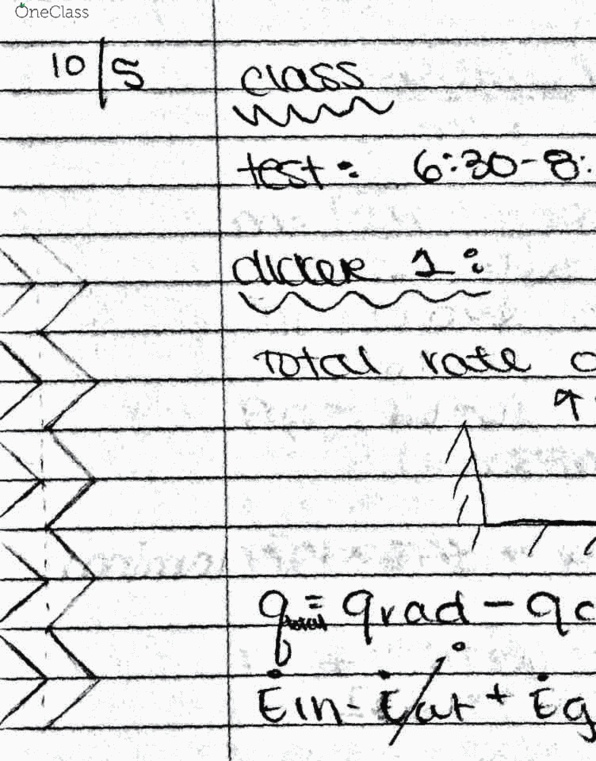 OneClass
10/5 class
test: 6:30-8:
clicker 1:
Total rate
q total = qrad - qc
Ėin - Ėout + Ėg